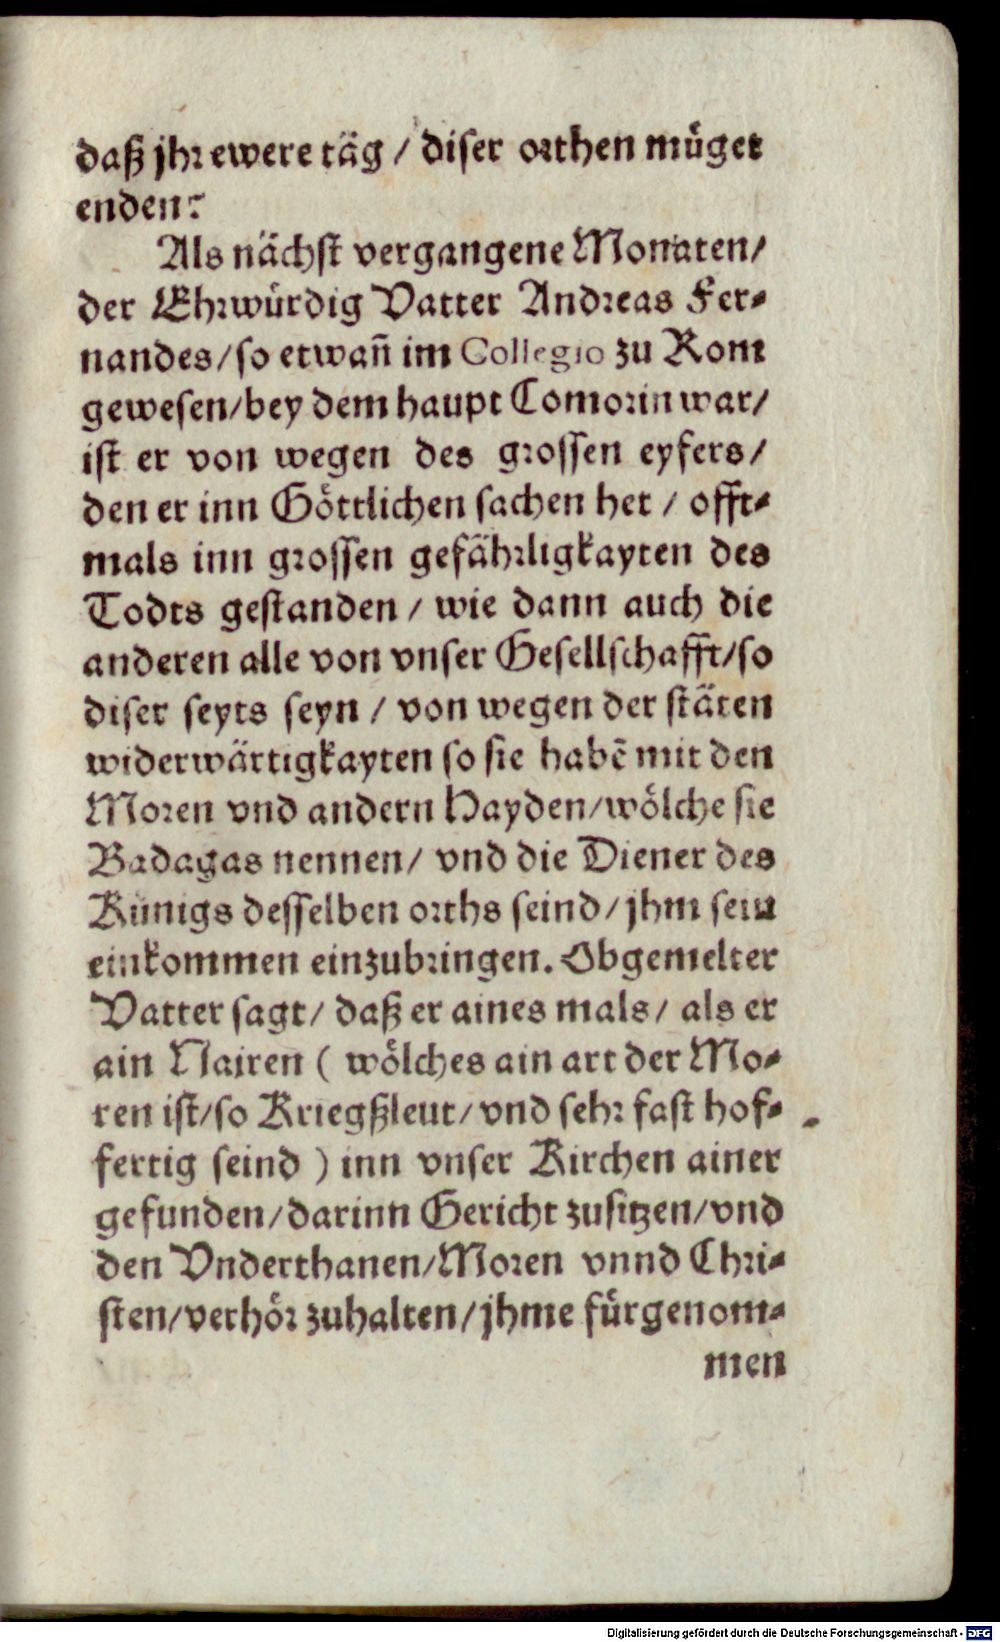 daß jhr ewere täg / diser orthen müget
enden:
Als nächst vergangene Monaten/
der Ehrwürdig Vatter Andreas Fer-
nandes/so etwañ im Collegio zu Rom
gewesen/bey dem haupt Comorin war/
ist er von wegen des grossen eyfers/
den er inn Göttlichen sachen het / offt-
mals inn grossen gefährligkayten des
Todts gestanden / wie dann auch die
anderen alle von vnser Gesellschafft/so
diser seyts seyn / von wegen der stäten
widerwärtigkayten so sie habē mit den
Moren vnd andern Hayden/wölche sie
Badagas nennen/ vnd die Diener des
Künigs desselben orths seind/jhm sein
einkommen einzubringen. Obgemelter
Vatter sagt/ daß er aines mals/ als er
ain Nairen ( wölches ain art der Mo-
ren ist/so Kriegßleut/vnd sehr fast hof-
fertig seind ) inn vnser Kirchen ainer
gefunden/darinn Gericht zusitzen/vnd
den Vnderthanen/Moren vnnd Chri-
sten/verhör zuhalten/jhme fürgenom-
men
Digitalisierung gefördert durch die Deutsche Forschungsgemeinschaft - DFG